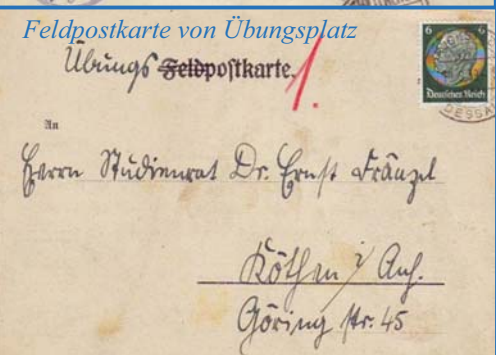 Feldpostkarte von Übungsplatz
Übungs Feldpostkarte. 1.
6
Deutsches Reich
DESSA
An
Herrn Studienrat Dr. Ernst Fränzel
Köthen i/ Anh.
Göring str. 45